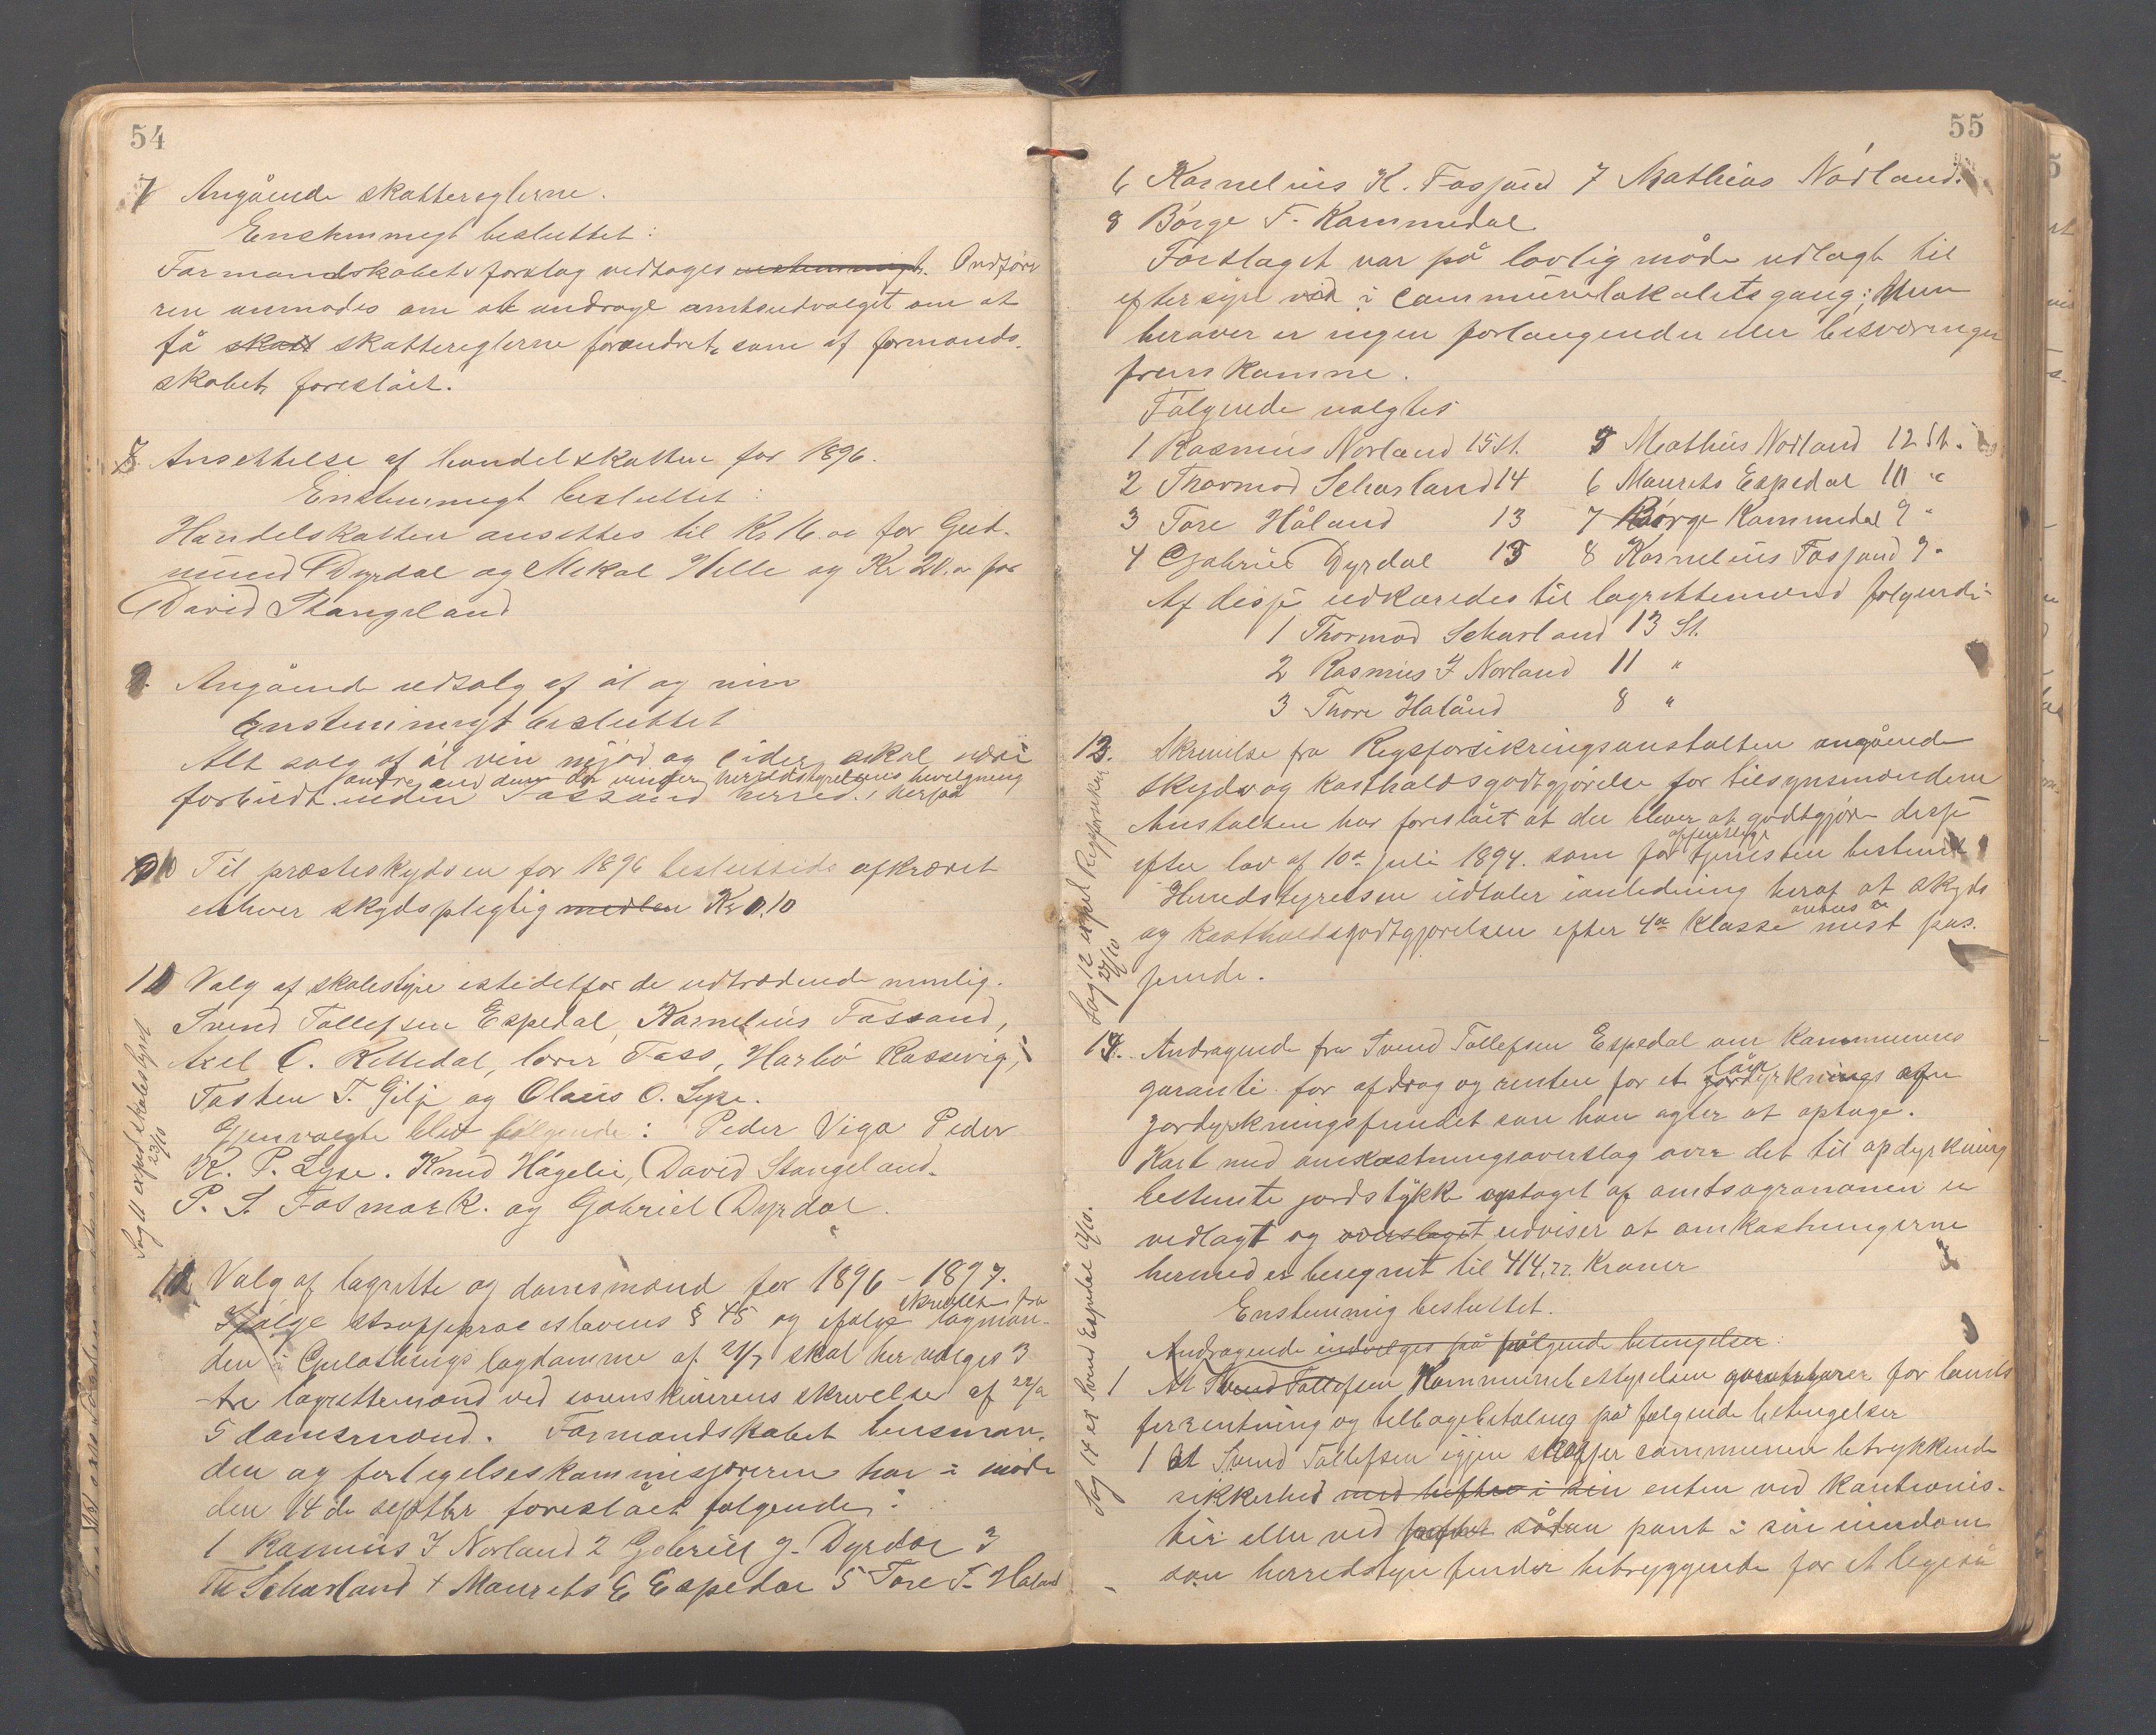 54
7 Angående skattereglerne.
Enstemmigt besluttet:
Formandskabets forslag vedtages enstemmigt. Ordføre
ren anmodes om at andrage amtsudvalget om at
få skatt skattereglerne forandret, som af formands-
skabet foreslået.
8 Ansettelse af handelskatten for 1896.
Enstemmigt besluttet:
Handelskatten ansettes til Kr 16.00 for Gud-
mund Dyrdal og Mikal Helle og Kr 20.00 for
David Stangeland
9. Angående udsalg af øl og vin
Enstemmigt besluttet
Alt salg af øl vin mjød og cider skal være
andre end dem der under herredstyrelsens bevilgning
forbudt inden Fossand herred. herpå
10 Til præsteskydsen for 1896 besluttedes afkrævet
enhver skydspligtig medlem Kr 0,10
11 Valg af skolestyre istedetfor de udtrædende nemlig.
Svend Tollefsen Espedal, Kornelius Fossand,
Axel C. Rettedal, lærer Foss, Harbo Rossavig,
Tosten T. Gilje og Olaus O. Lyse.
Gjenvalgte blev følgende: Peder Viga Peder
K. P. Lyse. Knud Högelie, David Stangeland.
P. S. Fosmark. og Gabriel Dyrdal.
Sag 11 exped skolestyret
23/10
12 Valg af lagrette og domsmænd for 1896-1897.
skrivelse fra
Ifølge straffeproceslovens § 45 og ifølge lagman-
den i Gulathings lagdømme af 21/7 skal her vælges 3
tre lagrettemænd ved sorenskriverens skrivelse af 22/8
5 domsmænd. Formandskabet lensman-
den og forligelseskommissærerne har i møde
den 14de septbr foreslået følgende:
1 Rasmus I Norland 2 Gabriel G. Dyrdal 3
Th Scharland 4 Maurits E Espedal 5 Tore T. Haland
55
6 Kornelius K. Fosjand 7 Mathias Nórland.
8 Börge T. Kommedal
Forslaget var på lovlig måde udlagt til
eftersyn ved i communelokalets gang; Men
herover er ingen forlangender eller besværinger
fremkomne.
Følgende valgtes
1 Rasmus Norland 15 St. 5 Mathias Norland 12 St.
2 Thormod Scharland 14 6 Maurits Espedal 10 "
3 Tore Håland 13 7 Børge Kommedal 9 "
4 Gabriel Dyrdal 13 8 Kornelius Fosjand 9 "
Af disse udkåredes til lagrettemænd følgende
1 Thormod Scharland 13 St.
2 Rasmus I Norland 11 "
3 Thore Håland 8 "
13. Skrivelse fra Rigsforsikringsanstalten angående
skyds og kostholdsgodtgjørelse for tilsynsmændene
Anstalten har foreslået at der bliver at godtgjøre disse
offentlige
efter lov af 10de juli 1894. som for tjenesten bestemt
Herredstyrelsen udtaler i anledning heraf at skyds
ansees
og kostholdsgodtgjørelsen efter 4de Klasse mest pas-
sende.
Sag 12 exped Rigsforsikr
23/10
14. Andragende fra Svend Tollefsen Espedal om Kommunens
lån
garanti for afdrag og renten for et jordyrknings af
jordyrkningsfundet som han agter at optage.
Kart med omkostningsoverslag over det til opdyrkning
bestemte jordstykke optaget af amtsagronomen er
vedlagt og overslaget udviser at omkostningerne
hermed er beregnet til 414,72 Kroner
Enstemmig besluttet.
Andragende indvilges på følgende betingelser:
1 At Svend Tollefsen Kommunebestyrelsen garanterer for lånets
forrentning og tilbagebetaling på følgende betingelser
1 At Svend Tollefsen igjen skaffer communen betryggende
sikkerhed med hefte i sin enten ved kautionis-
ter eller ved sådan pant i sin eiendom
som herredstyre finder betryggende for et ligeså
Sag 14 ex Svend Espedal 17/10.